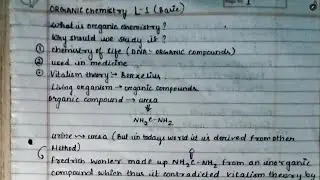 ORGANIC CHEMISTRY L-1 (Basic)
What is organic chemistry?
Why should we study it?
① chemistry of life (DNA - ORGANIC COMPOUNDS)
② used in medicine
③ Vitalism theory → Berzelius
Living organism → organic compounds
Organic compound → urea
↓
O
NH₂-C-NH₂
urine → urea (But in todays world it is derived from other
Method)
O
Fredrich Wohler made up NH₂-C-NH₂ from an inorganic
compound which thus it contradicted vitalism theory by